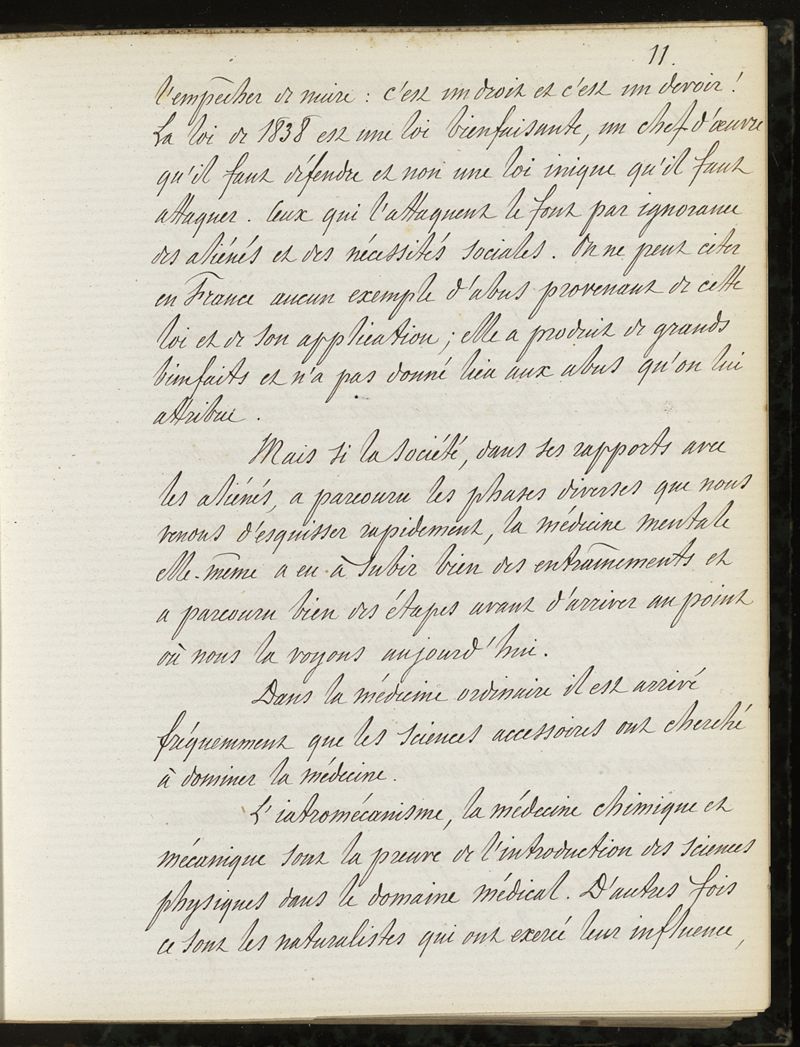 11.
l'empêcher de nuire : c'est un droit et c'est un devoir !
La loi de 1838 est une loi bienfaisante, un chef-d'œuvre
qu'il faut défendre et non une loi inique qu'il faut
attaquer. Ceux qui l'attaquent le font par ignorance
des aliénés et des nécessités sociales. On ne peut citer
en France aucun exemple d'abus provenant de cette
loi et de son application ; elle a produit de grands
bienfaits et n'a pas donné lieu aux abus qu'on lui
attribue.
Mais si la société, dans ses rapports avec
les aliénés, a parcouru les phases diverses que nous
venons d'esquisser rapidement, la médecine mentale
elle-même a eu à subir bien des entraînements et
a parcouru bien des étapes avant d'arriver au point
où nous la voyons aujourd'hui.
Dans la médecine ordinaire il est arrivé
fréquemment que les sciences accessoires ont cherché
à dominer la médecine.
L'iatromécanisme, la médecine chimique et
mécanique sont la preuve de l'introduction des sciences
physiques dans le domaine médical. D'autres fois
ce sont les naturalistes qui ont exercé leur influence,